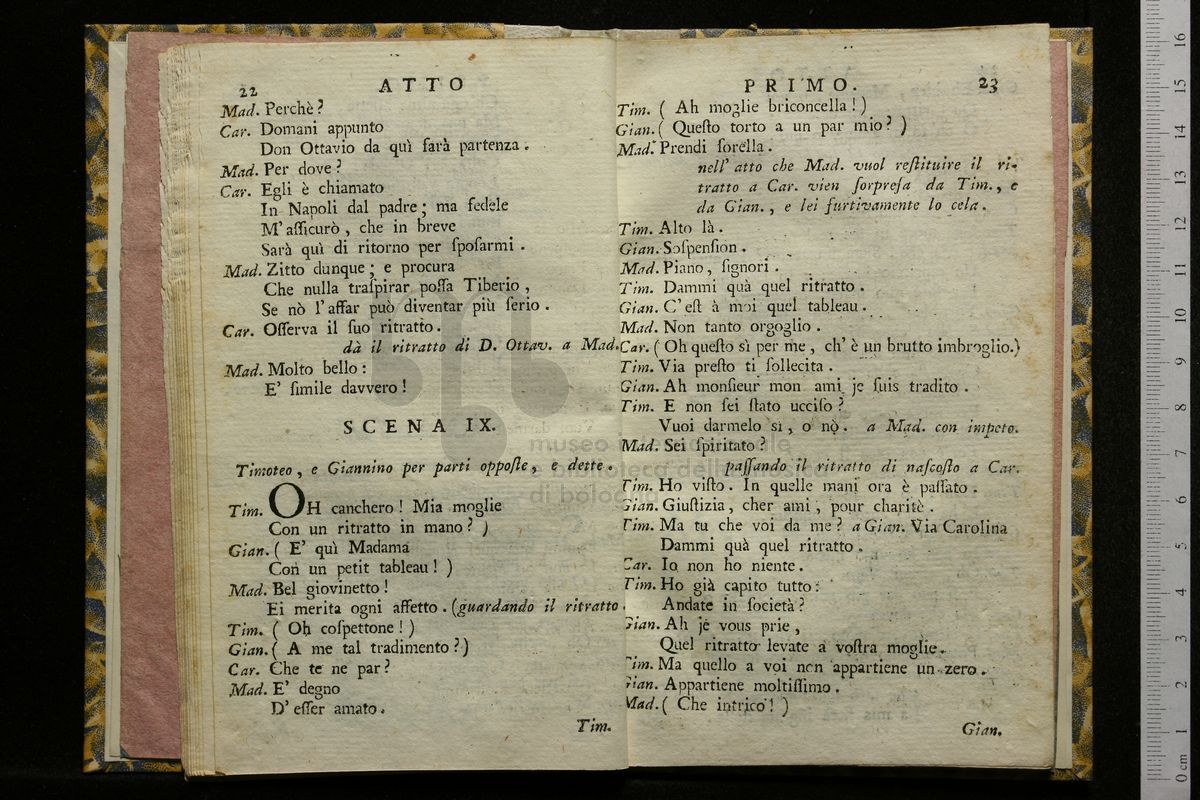 22 ATTO
Mad. Perchè?
Car. Domani appunto
Don Ottavio da quì ſarà partenza.
Mad. Per dove?
Car. Egli è chiamato
In Napoli dal padre; ma fedele
M'aſſicurò, che in breve
Sarà quì di ritorno per ſpoſarmi.
Mad. Zitto dunque; e procura
Che nulla traſpirar poſſa Tiberio,
Se nò l'affar può diventar più ſerio.
Car. Oſſerva il ſuo ritratto.
dà il ritratto di D. Ottav. a Mad.
Mad. Molto bello:
E' ſimile davvero!
SCENA IX.
Timoteo, e Giannino per parti oppoſte, e dette.
Tim. OH canchero! Mia moglie
Con un ritratto in mano? )
Gian. ( E' quì Madama
Con un petit tableau! )
Mad. Bel giovinetto!
Ei merita ogni affetto. (guardando il ritratto.
Tim. ( Oh coſpettone! )
Gian. ( A me tal tradimento? )
Car. Che te ne par?
Mad. E' degno
D'eſſer amato.
Tim.
PRIMO. 23
Tim. ( Ah moglie briconcella! )
Gian. ( Queſto torto a un par mio? )
Mad. Prendi ſorella.
nell' atto che Mad. vuol reſtituire il ri-
tratto a Car. vien ſorpreſa da Tim., e
da Gian., e lei furtivamente lo cela.
Tim. Alto là.
Gian. Soſpenſion.
Mad. Piano, ſignori.
Tim. Dammi quà quel ritratto.
Gian. C'eſt à moi quel tableau.
Mad. Non tanto orgoglio.
Car. ( Oh queſto sì per me, ch'è un brutto imbroglio.)
Tim. Via preſto ti ſollecita.
Gian. Ah monſieur mon ami je ſuis tradito.
Tim. E non ſei ſtato ucciſo?
Vuoi darmelo sì, o nò. a Mad. con impeto.
Mad. Sei ſpiritato?
paſſando il ritratto di naſcoſto a Car.
Tim. Ho viſto. In quelle mani ora è paſſato.
Gian. Giuſtizia, cher ami, pour charitè.
Tim. Ma tu che voi da me? a Gian. Via Carolina
Dammi quà quel ritratto.
Car. Io non ho niente.
Tim. Ho già capito tutto:
Andate in ſocietà?
Gian. Ah je vous prie,
Quel ritratto levate a voſtra moglie.
Tim. Ma quello a voi non appartiene un zero.
Gian. Appartiene moltiſſimo.
Mad. ( Che intrico! )
Gian.
0 cm 1 2 3 4 5 6 7 8 9 10 11 12 13 14 15 16